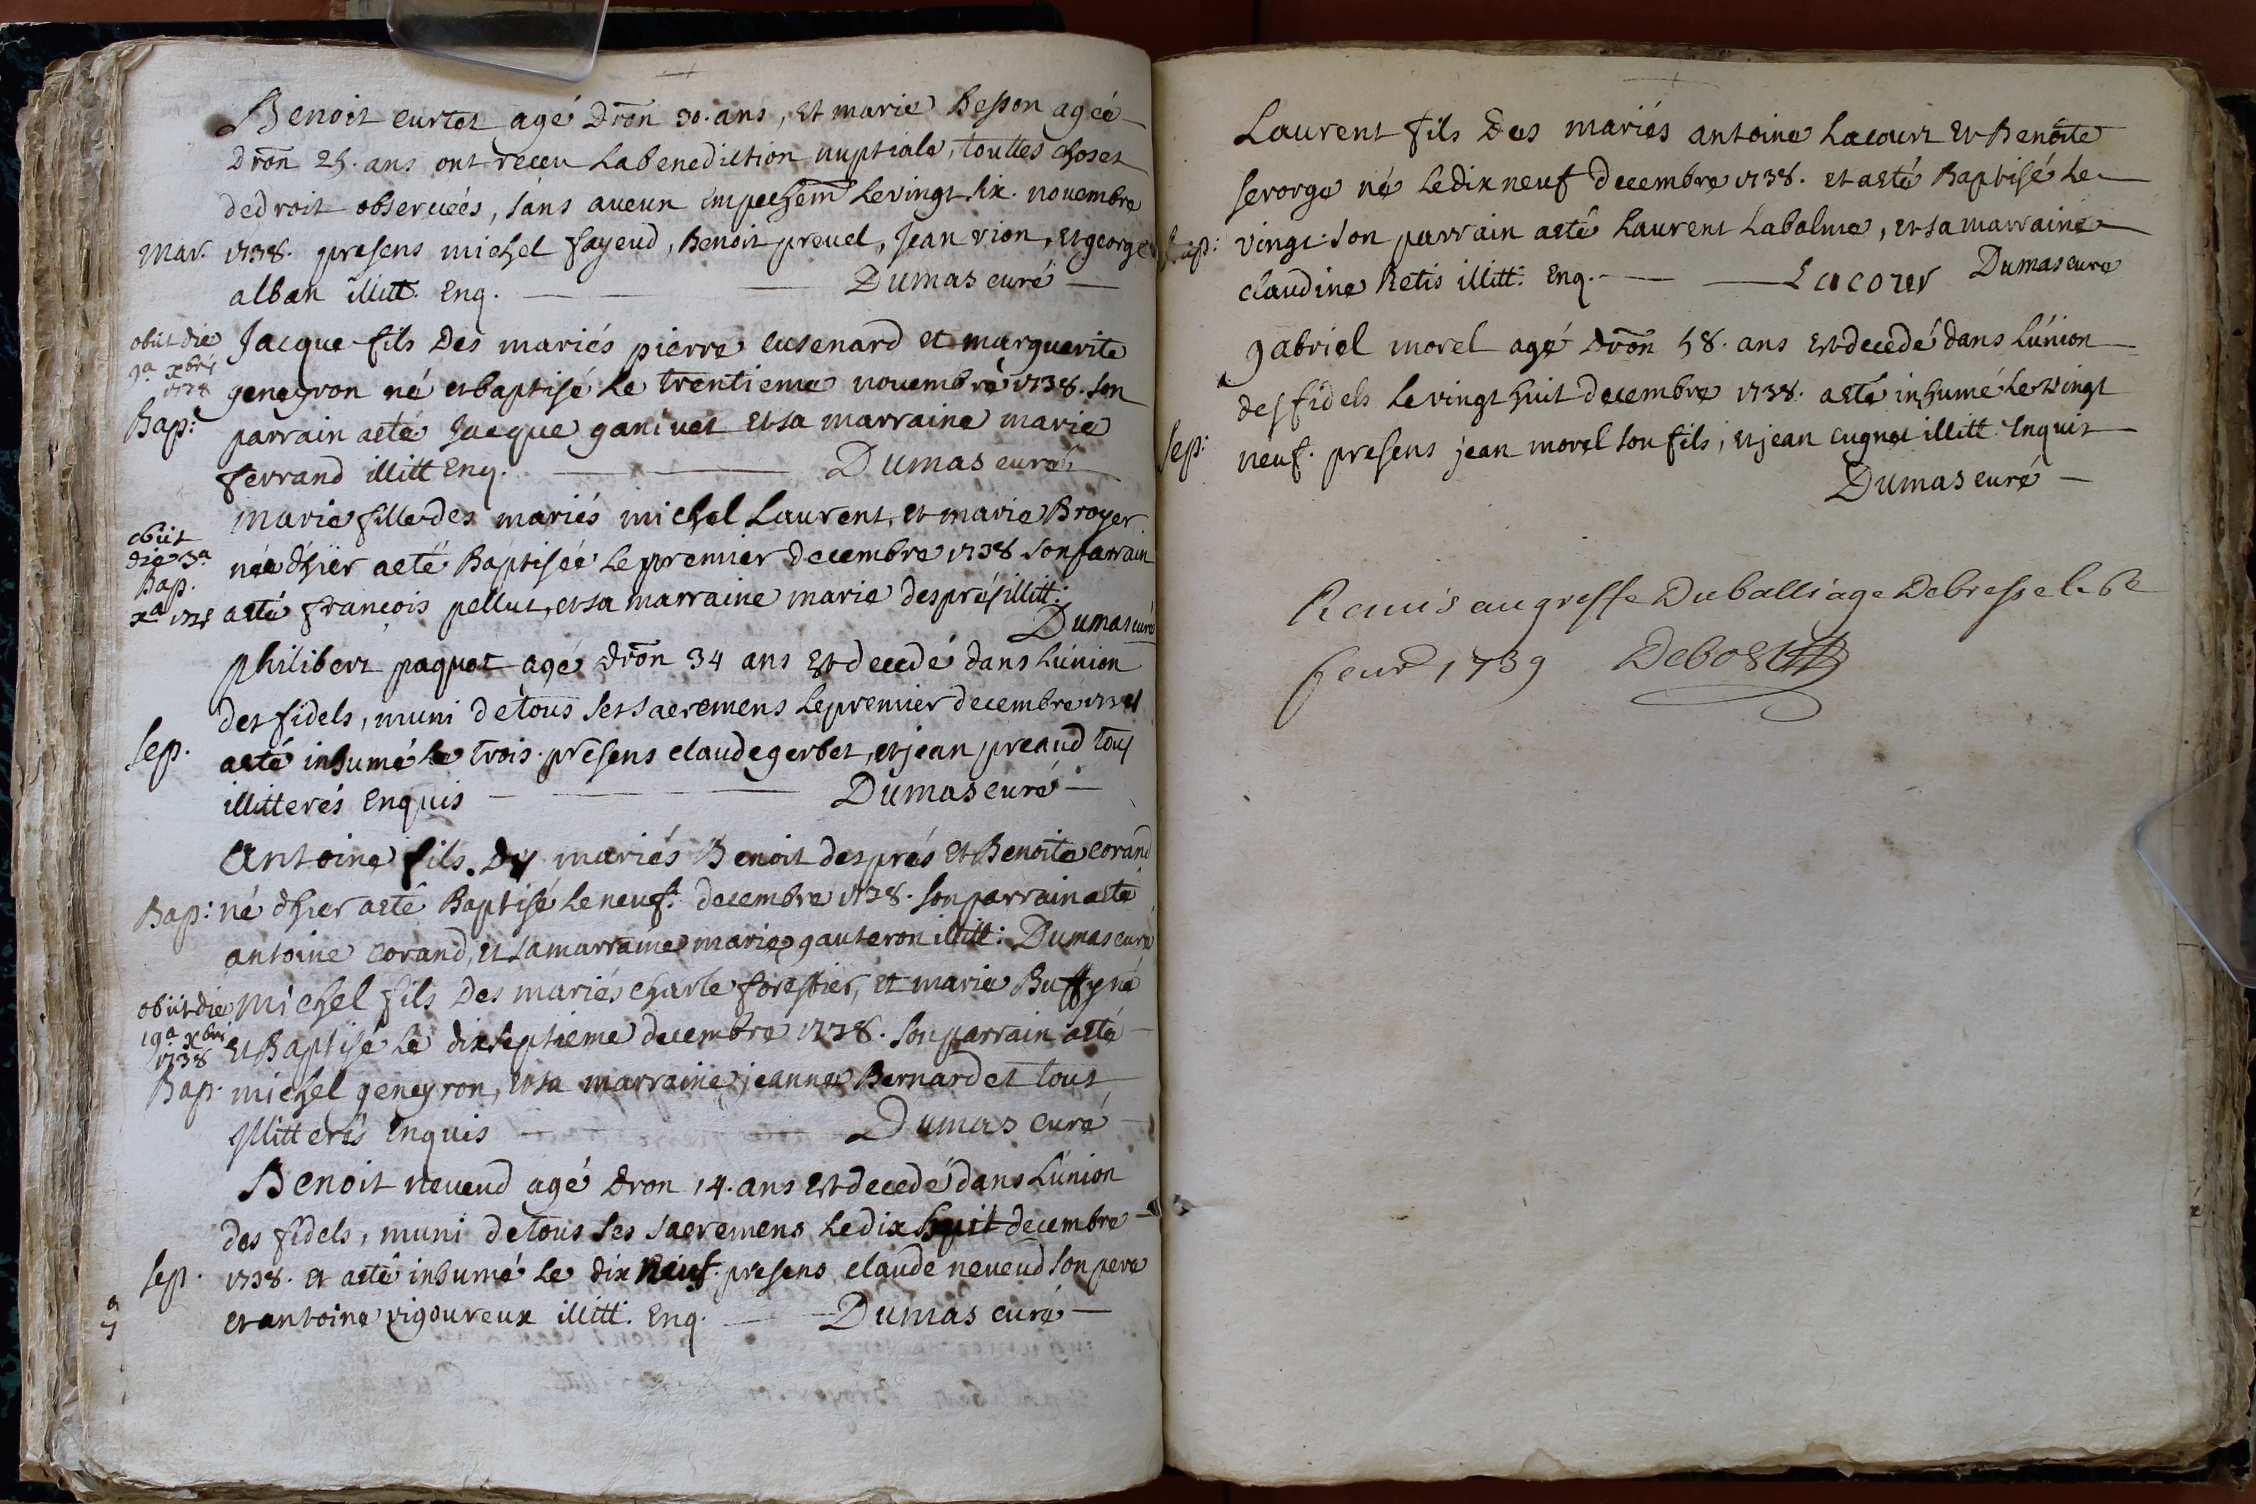 Benoit curtet agé dron 30. ans, Et marie Besson agéé
dron 25. ans ont receu la benediction nuptiale, touttes choses
de droit observéés, sans aucun empechem le vingt six. novembre
Mar. 1738. presens michel fayeud, Benoit prevel, Jean rion, et george
alban illitt. Enq. Dumas curé
obiit die
9a xbris
1738
Jacque fils Des mariés pierre cusenard et marguerite
geneyron né et baptisé le trentieme novembre 1738. son
Bap: parrain a eté Jacque ganivet et sa marraine marie
ferrand illitt Enq. Dumas curé
obiit
die 3a
Bap.
xa 1738
marie fille des mariés michel Laurent, et marie Broyer
néé d'hïer a eté Baptiséé le premier decembre 1738 son parrain
a eté françois pellut, et sa marraine marie després illitt:
Dumas curé
philibert paquet agé dron 34 ans Est decedé dans L'union
des fidels, muni de tous ses sacremens le premier decembre 1738
Sep. a eté inhumé le trois. presens claude gerbet, et jean preaud tous
illitterés Enquis Dumas curé
Antoine fils. Des mariés Benoit després Et Benoite corand
Bap: né d'hier a eté Baptisé le neuf. decembre 1738. son parrain a eté
antoine corand, et sa marraine marie gauteron illitt: Dumas curé
obiit die
19a xbris
1738
michel fils Des mariés charle forestier, et marie Buffy né
et Baptisé le dix septieme decembre 1738. son parrain a eté
Bap. michel geneyron, et sa marraine jeanne Bernardet tous
Illitterés Enquis Dumas curé
Benoit neveud agé dron 14. ans Est decedé dans L'union
des fidels, muni de tous ses sacremens le dix huit decembre
Sep. 1738. et a eté inhumé le dix neuf. presens claude neveud son pere
et antoine vigoureux illitt. Enq. Dumas curé
Laurent fils Des mariés antoine Lacour et Benoite
serorge né le dix neuf decembre 1738. et a eté Baptisé le
Bap: vingt. son parrain a eté Laurent Labalme, et sa marraine
claudine Retis illitt: Enq. Lacour Dumas curé
gabriel morel agé dron 58. ans Est decedé dans L'union
des fidels le vingt huit decembre 1738. a eté inhumé le vingt
Sep: neuf. presens jean morel son fils, et jean cugnet illitt. Enquis
Dumas curé
Remis au greffe Du balliage De bresse le 6e
feur 1739 Debost